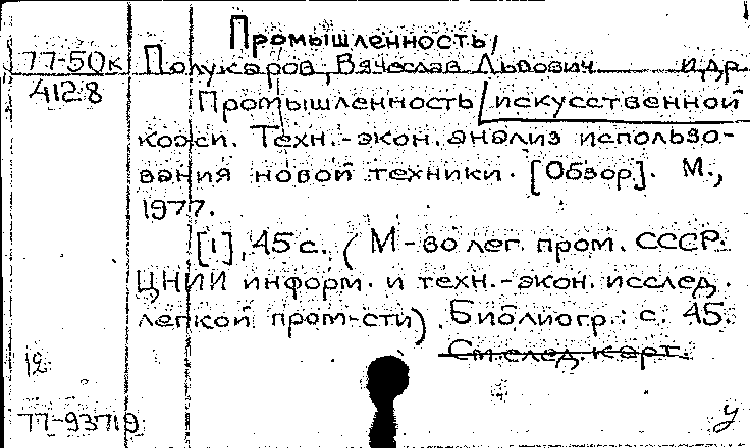 Промышленность/
77-50к Полукаров, Вячеслав Львович и др.
4128 Промышленность искусственной
кожи. Техн.-экон. анализ использо-
вания новой техники. [Обзор]. М.,
1977.
[1], 45 с. (М-во лег. пром. СССР.
ЦНИИ информ. и техн.-экон. исслед.
легкой пром-сти). Библиогр.: с. 45.
См след. карт.
12
77-93719 У